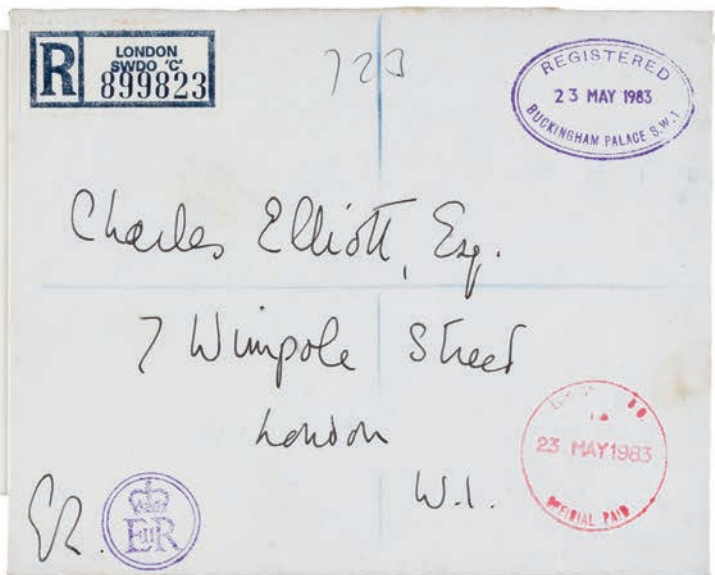 R
LONDON
SWDO 'C'
899823
723
REGISTERED
23 MAY 1983
BUCKINGHAM PALACE S.W.1
Charles Elliott, Esq.
7 Wimpole Street
London
W.1.
23 MAY 1983
OFFICIAL PAID
ER.
EIIR